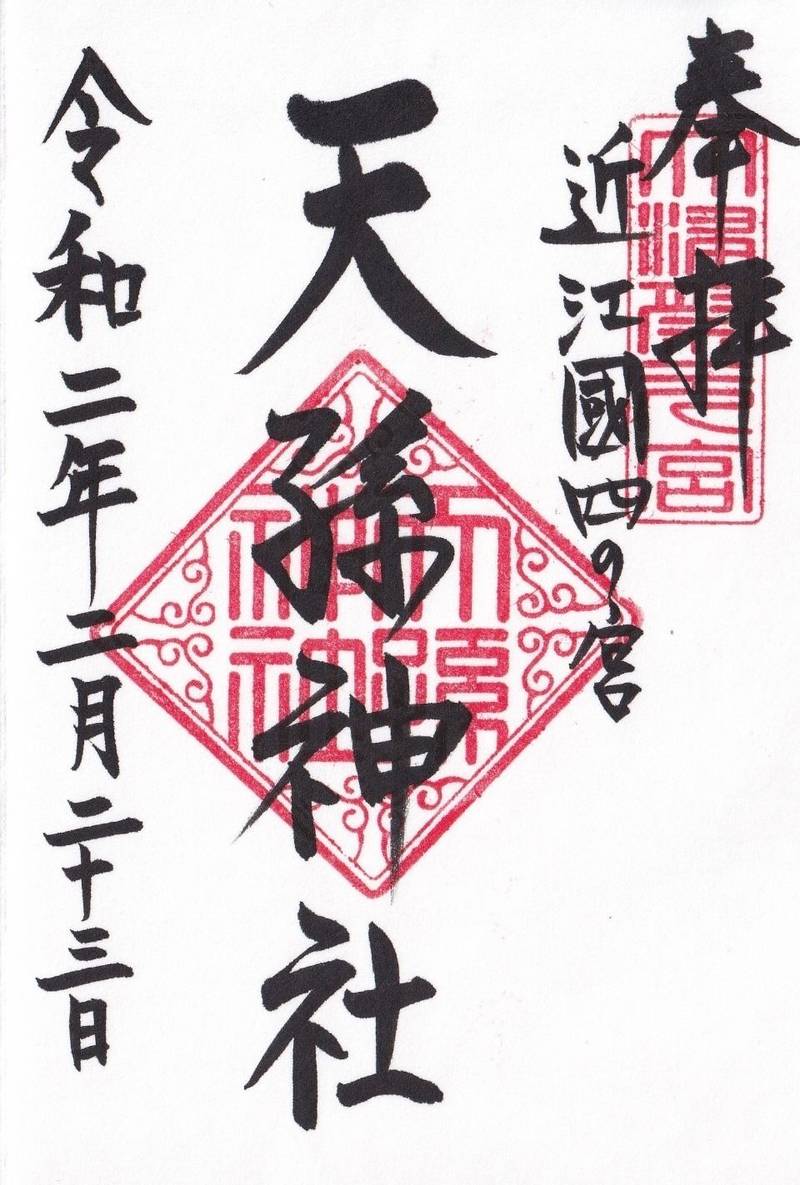 奉拝
近江國四の宮
天孫神社
令和二年二月二十三日
天孫神社